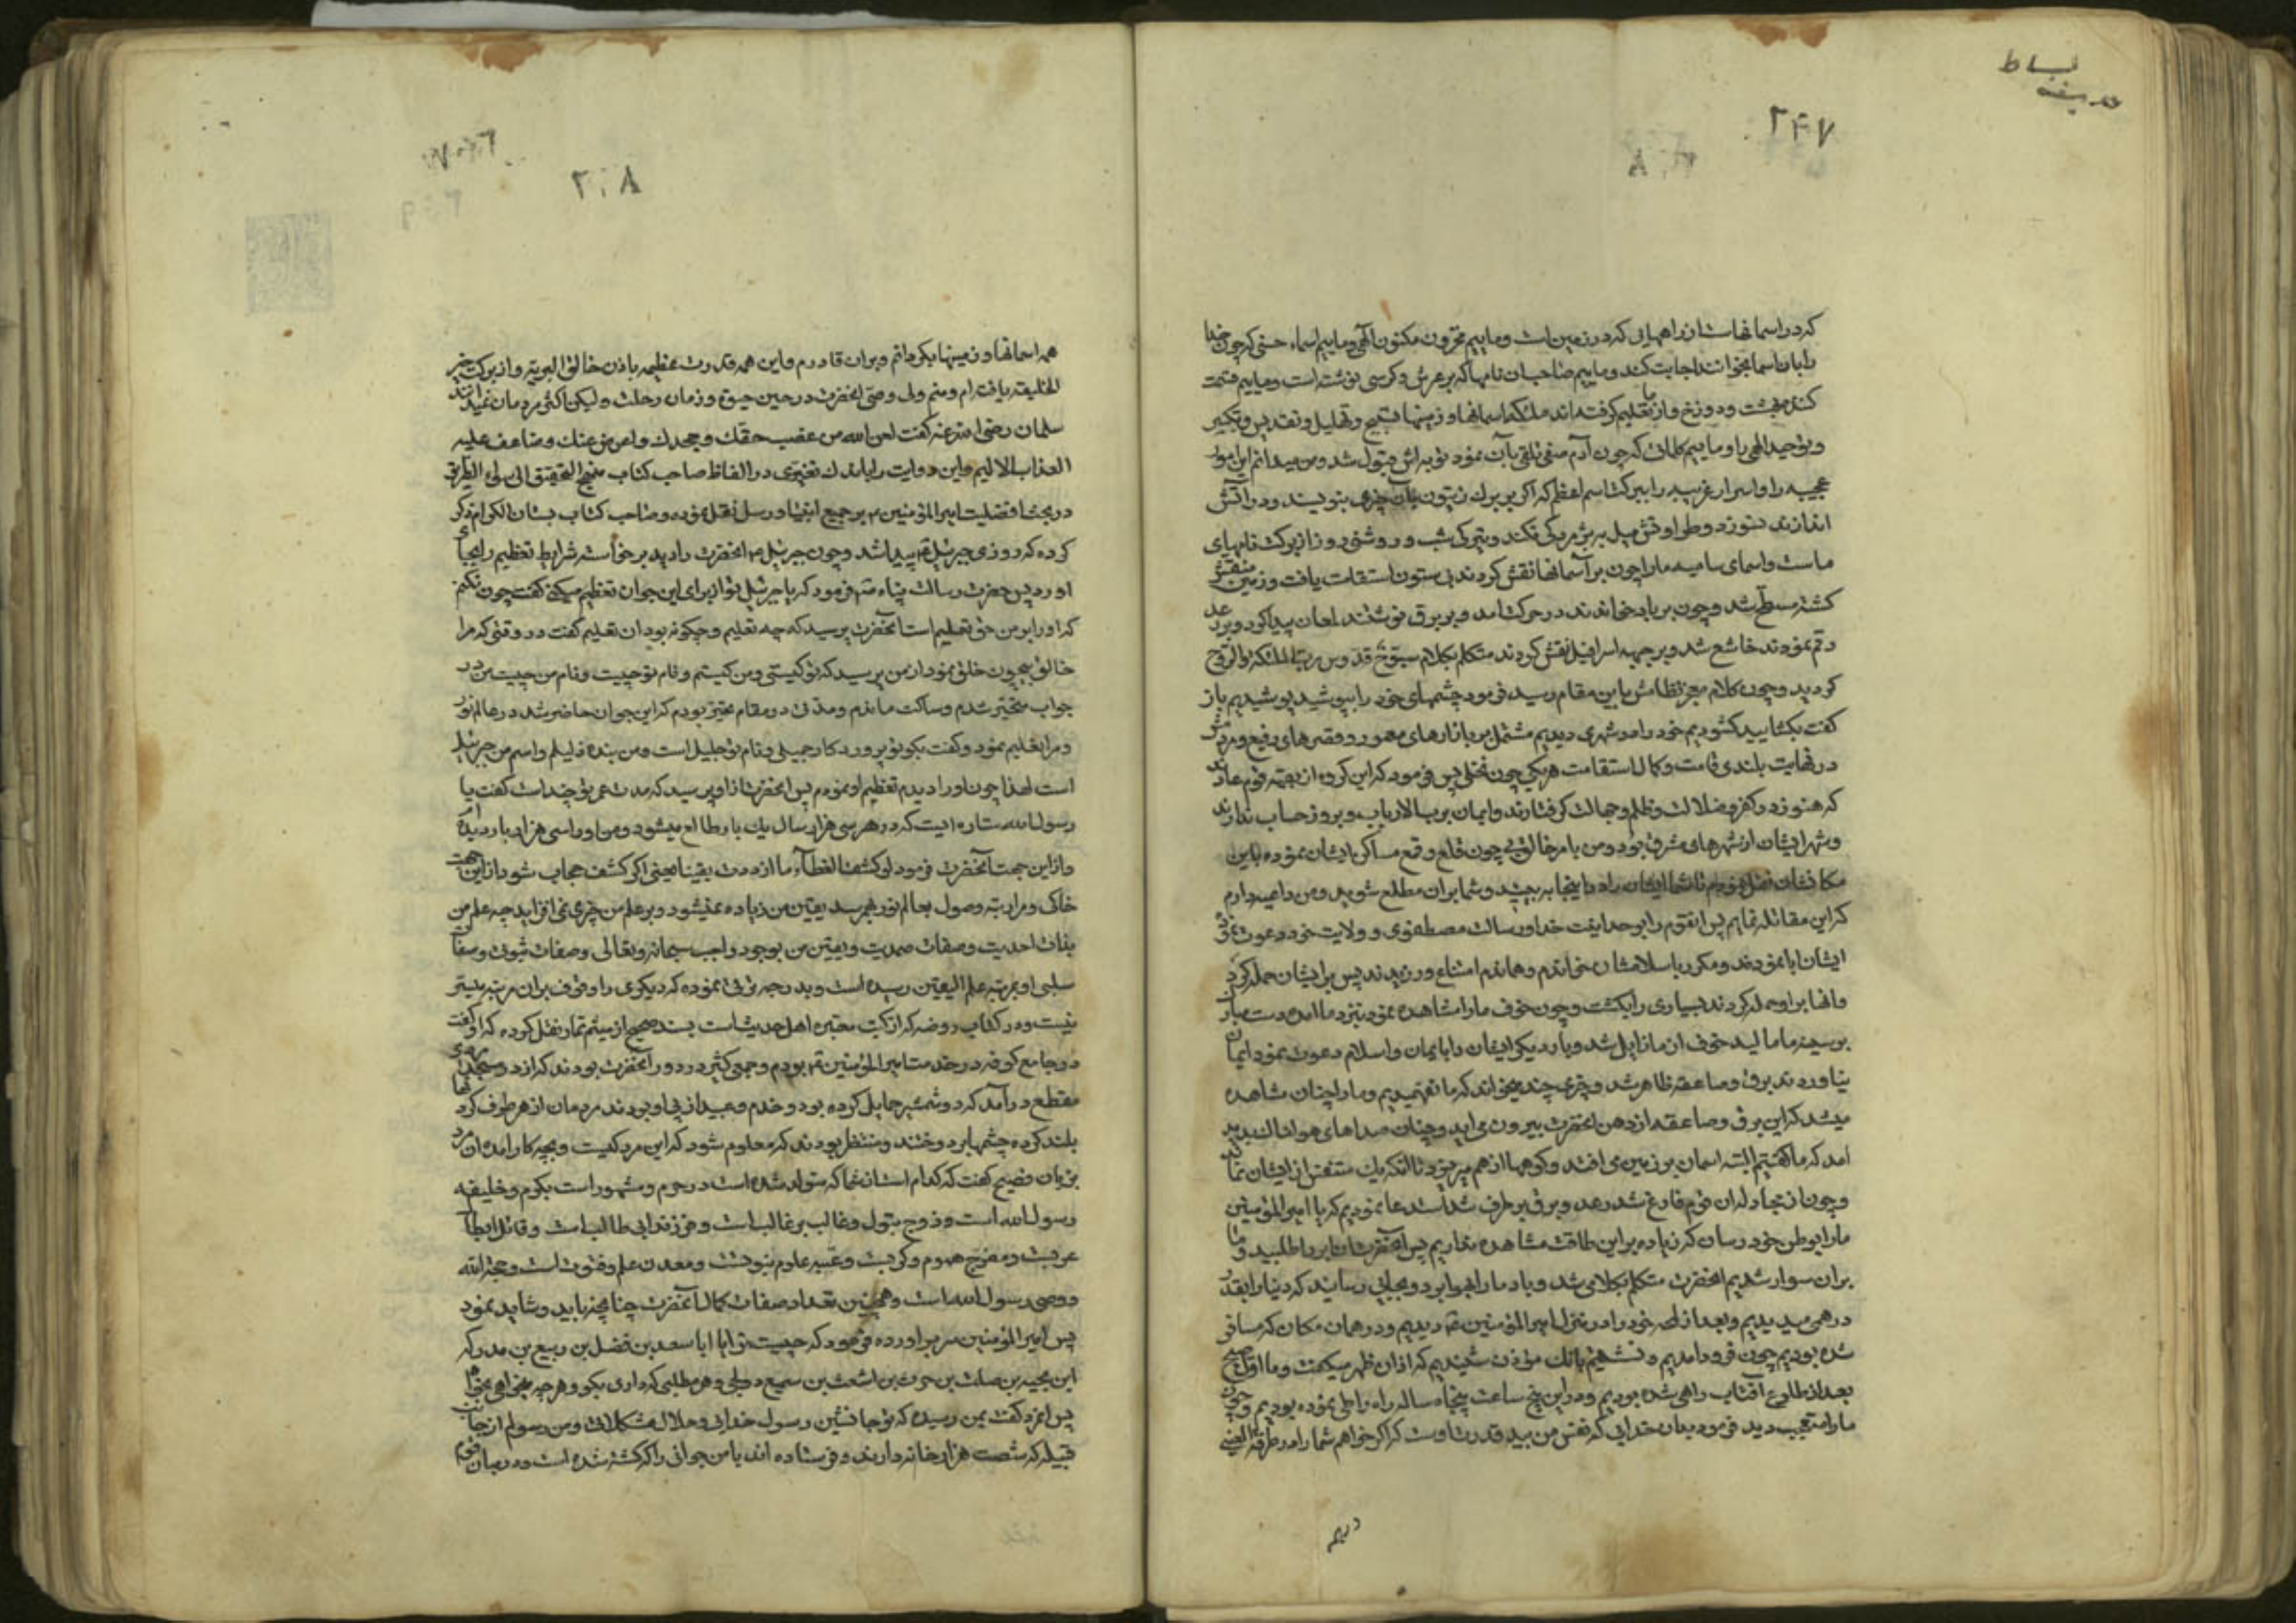 بساط
۲۴۷
که در اسمانهاست از راههائی که در زمین است و ماییم مخزون مکنون الهی و ماییم اسماء حسنی که چون خدا
را بان اسما بخوانند اجابت کند و ماییم صاحبان نامها که بر عرش و کرسی نوشته است و ماییم قسمت
کننده بهشت و دوزخ و از ما تعلیم گرفته اند ملئکه اسمانها و زمینها تسبیح و تهلیل و تقدیس و تکبیر
و توحید الهی را و ماییم کلماتی که چون آدم صفی تلقی بآن نمود توبه اش قبول شد و من میدانم این امور
عجیبه را و اسرار غریبه را ببرکت اسم اعظم که اکر بر برک زیتون بنویسند و در اتش
اندازند نسوزد و طراوتش میل به پژمردگی نکند و تیرکی شب و روشنی روز از برکت نامهای
ماست و اسمای سامیه ما را چون بر آسمانها نقش کردند بی ستون استقامت یافت و زمین منقش
کشته مسطح شد و چون بر باد خواندند در حرکت امد و بر برق نوشتند لمعان پیدا کرد و بر رعد
رقم نمودند خاشع شد و بر جبهه اسرافیل نقش کردند متکلم بکلام سبوح قدوس رب الملئکة والروح
کردید و چون کلام معجز نظامش باین مقام رسید فرمود چشمهای خود را بپوشید پوشیدیم باز
کفت بکشایید کشودیم خود را در شهری دیدیم مشتمل بر بازارهای معمور و قصرهای رفیع و مردمش
در نهایت بلندی قامت و کمال استقامت هر یکی چون نخلی پس فرمود که این کروه از بقیه قوم عادند
که هنوز در کفر و ضلالت و ظلم و جهالت کرفتارند و ایمان برب الارباب و بروز حساب ندارند
و شهر ایشان از شهرهای مشرق بود و من بامر خالق بی چون قلع و قمع مساکن ایشان نموده باین
مکانشان نقل نمودم تا شما ایشان را در اینجا ببینید و شما بران مطلع شوید و من داعیه دارم
که این مقاتله نمایم پس انقوم را بوحدانیت خدا و رسالت مصطفوی و ولایت خود دعوت نمود
ایشان ابا نمودند و مکرر باسلامشان خواندم و هماندم امتناع ورزیدند پس بر ایشان حمله کرد
و انها بر او حمله کردند بسیاری را بکشت و چون خوف ما را مشاهده نمود بنزد ما امده دست مبارک
بر سینه ما مالید خوف از ما زایل شد و بار دیکر ایشان را بایمان و اسلام دعوت نمود ایمان
نیاوردند برق و صاعقه ظاهر شد و چیزی چند میخواند که ما نفهمیدیم و ما را چنان مشاهده
میشد که این برق و صاعقه از دهن انحضرت بیرون می اید و چنان صداهای هولناک پدید
امد که ما کفتیم البته اسمان بر زمین می افتد و کوهها از هم میریزد تا انکه یک متنفس از ایشان نماند
و چون از مجادله ان قوم فارغ شد رعد و برق برطرف شد استدعا نمودیم که یا امیر المؤمنین
ما را بوطن خود رسان که زیاده بر این طاقت مشاهده نداریم پس انحضرت ان ابر را طلبید و ما
بران سوار شدیم انحضرت متکلم بکلامی شد و باد ما را بهوا برد و بجایی رسانید که دنیا را بقدر
درهمی میدیدیم و بعد از لمحه خود را در منزل امیر المؤمنین ع دیدیم و در همان مکان که مسافر
شده بودیم چون فرود امدیم و نشستیم بانک مؤذن شنیدیم که اذان ظهر میکفت و ما اول صبح
بعد از طلوع آفتاب راهی شده بودیم و در این پنج ساعت پنجاه ساله راه را طی نموده بودیم و چون
ما را متعجب دید فرمود بدان خدایی که نفس من بید قدرت اوست که اکر خواهم شما را در طرفة العینی
در همه
۲۰۸
همه اسمانها و زمینها بکردانم و بران قادرم و این همه قدرت عظیمه باذن خالق البریة و از برکت خیر
الخلیقه یافته ام و منم ولی و وصی انحضرت در حین حیوة و زمان رحلت و لیکن اکثر مردمان نمیدانند
سلمان رضی الله عنه کفت لعن الله من غصب حقک و جحدک و اعرض عنک و ضاعف علیه
العذاب الالیم و این روایت را باندک تغییری در الفاظ صاحب کتاب منهج التحقیق الی سواء الطریق
در بحث افضلیت امیر المؤمنین ع بر جمیع انبیا و رسل نقل نموده و صاحب کتاب بستان الکرام ذکر
کرده که روزی جبرئیل ع پیدا شد و چون جبرئیل ع انحضرت را دید برخواسته شرایط تعظیم را بجای
اورد پس حضرت رسالت پناه ص فرمود که یا جبرئیل تو از برای این جوان تعظیم میکنی کفت چون نکنم
که او را بر من حق تعلیم است آنحضرت پرسید که چه تعلیم و چکونه بود ان تعلیم کفت در وقتی که مرا
خالق بیچون خلق نمود از من پرسید که تو کیستی و من کیستم و نام تو چیست و نام من چیست من در
جواب متحیر شدم و ساکت ماندم و مدتی در مقام تحیر بودم که این جوان حاضر شد در عالم نور
و مرا تعلیم نمود و کفت بکو تو پروردکار جمیلی و نام تو جلیل است و من بنده ذلیلم و اسم من جبرئیل
است لهذا چون او را دیدم تعظیم او نمودم پس انحضرت از او پرسید که مدت عمر تو چند است کفت یا
رسول الله ستاره ایست که در هر سی هزار سال یک بار طالع میشود و من او را سی هزار بار دیده ام
و از این جهت آنحضرت فرمود لو کشف الغطاء ما ازددت یقینا یعنی اکر کشف حجاب شود از این جهت
خاک و مرا رتبه وصول بعالم نور بهم رسد یقین من زیاده نمیشود و بر علم من چیزی نمی افزاید چه علم من
بذات احدیت و صفات صمدیت و یقین من بوجود واجب سبحانه و تعالی و صفات ثبوتی و صفات
سلبی او بمرتبه علم الیقین رسیده است و بدرجه ترقی نموده که دیکری را وقوف بران مرتبه میسر
نیست و در کتاب روضه که از کتب معتبره اهل حدیث است بسند صحیح از میثم تمار نقل کرده که او کفت
در جامع کوفه در خدمت امیر المؤمنین ع بودم و جمعی کثیر در دور آنحضرت بودند که از در مسجد مردی
مقطع درآمد که دو شمشیر حمایل کرده بود و خدم و عبید از پی او بودند مردمان از هر طرف کردنها
بلند کرده چشمها بر دوختند و منتظر بودند که معلوم شود که این مرد کیست و بچه کار امده ان مرد
بزبان فصیح کفت که کدام است از شما که متولد شده است در حرم و مشهور است بکرم و خلیفه
رسول الله است و زوج بتول و غالب بر غالب است و فرزند ابی طالب است و قاتل ابطال
عرب است و مفرج هموم و کرب است و عیبه علوم نبوتست و معدن علم و فتوت است و حجة الله
و وصی رسول الله است و همچنین تعداد صفات کمال آنحضرت چنانچه باید و شاید نمود
پس امیر المؤمنین سر براورده فرمود که چیست ترا یا ابا سعد بن فضل بن ربیع بن مدرکه
ابن نجیبه بن صلت بن حرث بن اشعث بن سمیع دولی و هر مطلبی که داری بکو و هر چه میخواهی بخواه
پس ان مرد کفت بمن رسیده که تو جانشین رسول خدایی و حلال مشکلاتی و من رسولم از جانب
قبیله که شصت هزار خانه دارند و فرستاده اند با من جوانی را که کشته شده است و در میان قوم